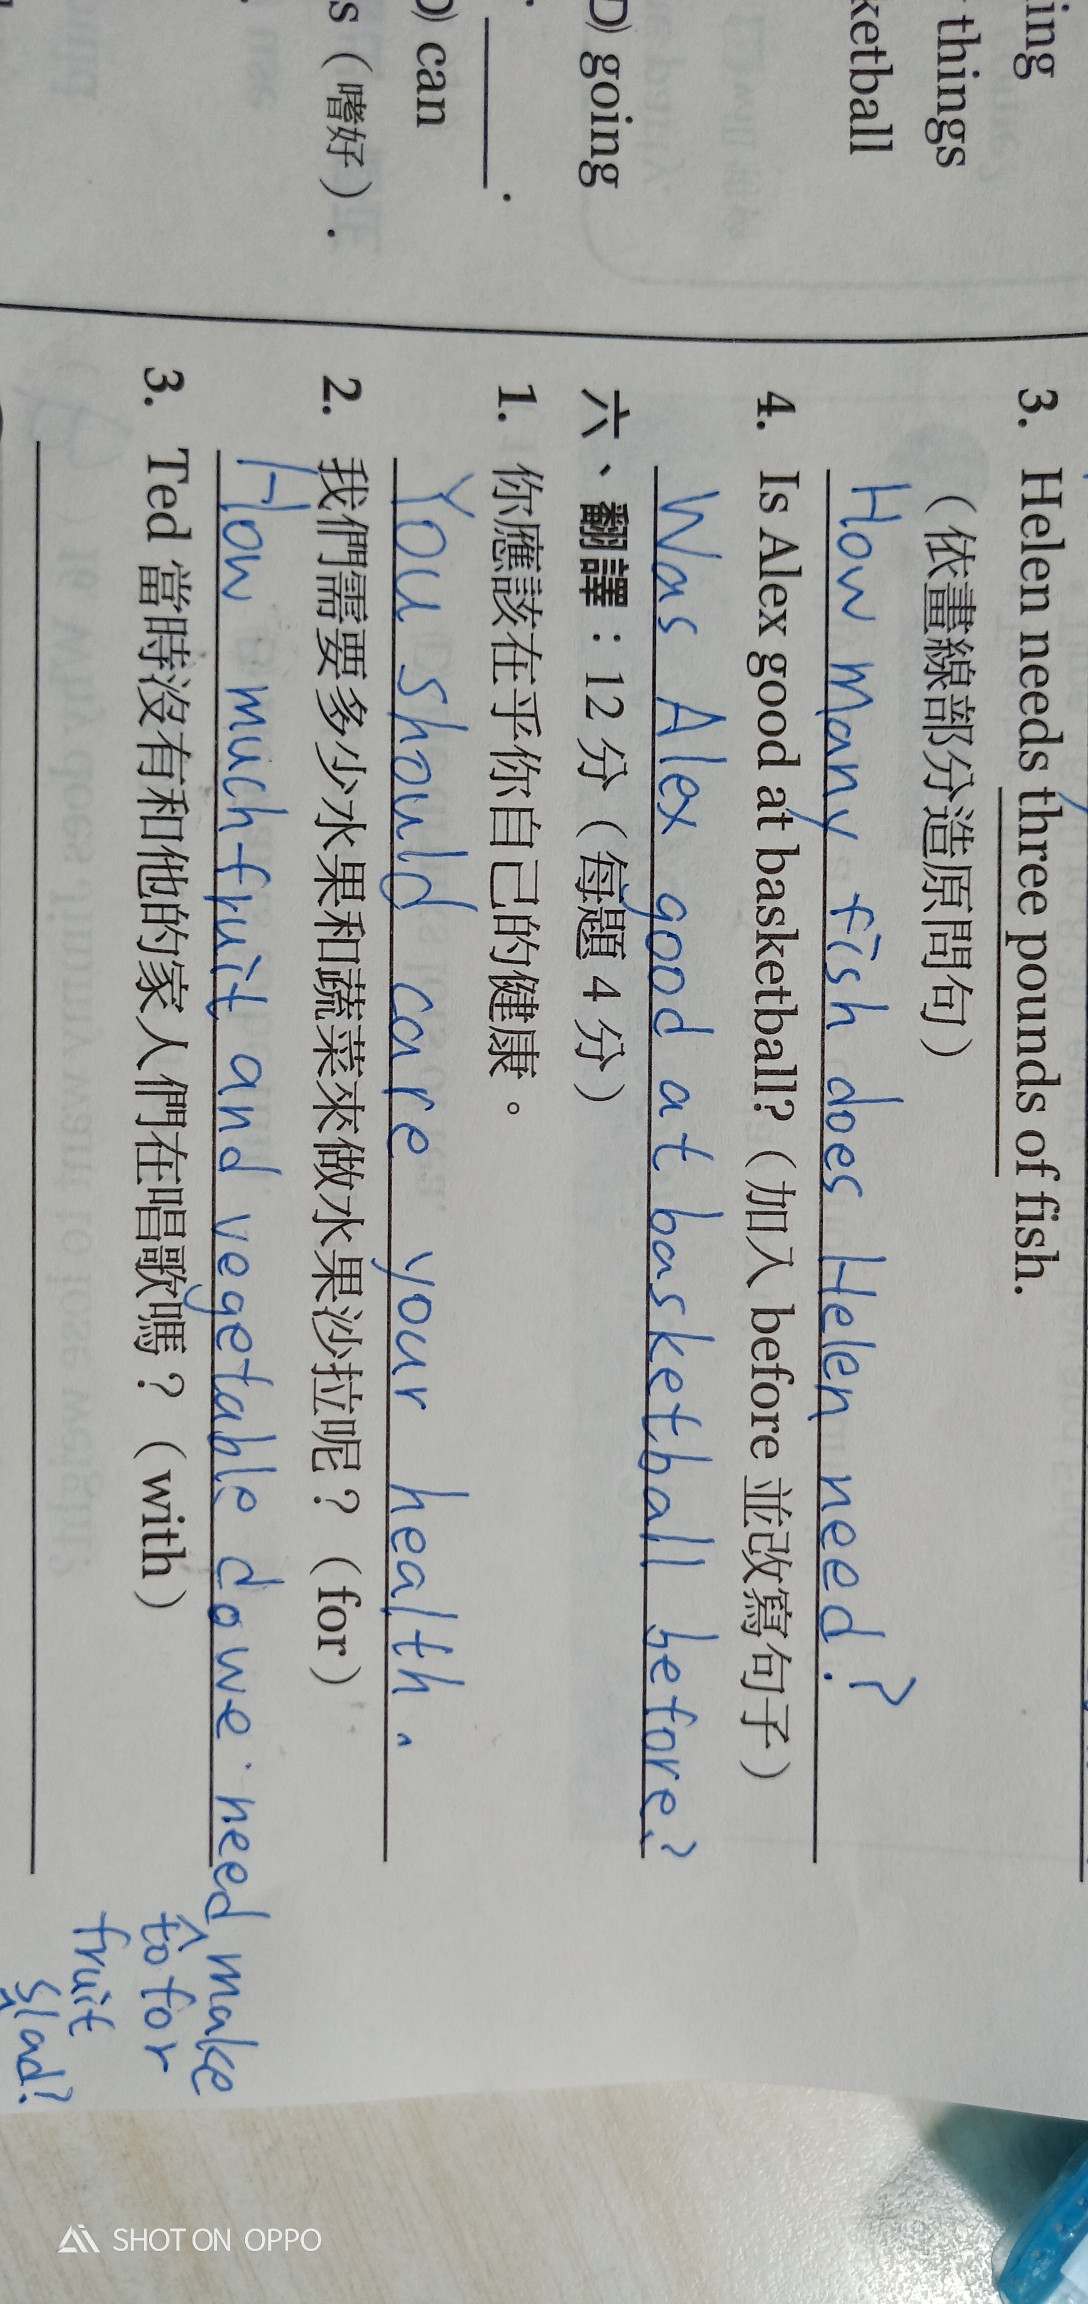 ing
things
ketball
(D) going
.
can
s（嗜好）.
3. Helen needs three pounds of fish.
（依畫線部分造原問句）
How many fish does Helen need?
4. Is Alex good at basketball?（加入 before 並改寫句子）
Was Alex good at basketball before?
六、翻譯：12 分（每題 4 分）
1. 你應該在乎你自己的健康。
You should care your health.
2. 我們需要多少水果和蔬菜來做水果沙拉呢？（for）
How much fruit and vegetable do we need make
to for
fruit
slad?
3. Ted 當時沒有和他的家人們在唱歌嗎？（with）
SHOT ON OPPO